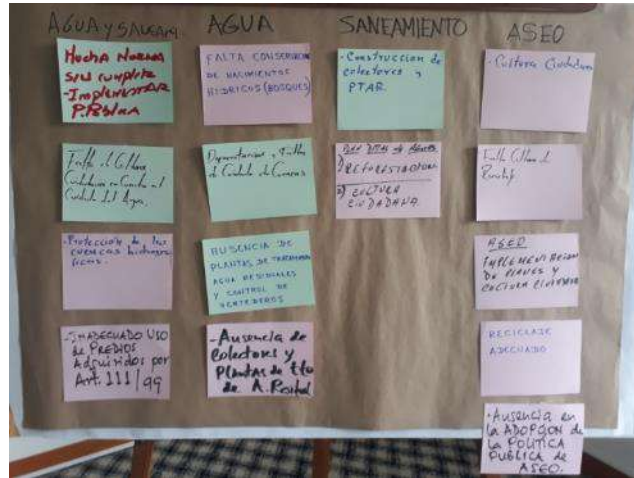 AGUA Y SANEAM.
Mucha Norma
sin cumplirse
-Implementar
P. Pública
Falta de Cultura
Ciudadana en Cuanto al
Cuidado del Agua.
-Protección de las
cuencas hidrográ
ficas.
-INADECUADO USO
de PREDIOS
Adquiridos por
Art. 111/99
AGUA
FALTA CONSERVACION
DE NACIMIENTOS
HIDRICOS (BOSQUES)
Falta
de Cuidado de Cuencas
AUSENCIA DE
PLANTAS DE
AGUA RESIDUALES
Y CONTROL DE
VERTEDEROS
-Ausencia de
Colectores y
Plantas de tto
de A.
SANEAMIENTO
-Construccion de
colectores y
PTAR.
1) REFORESTACION
2) CULTURA
CIUDADANA.
ASEO
-Cultura Ciudadana
Falta Cultura de
Reciclaje
ASEO
IMPLEMENTACION
DE PLANES Y
CULTURA CIUDADANA
RECICLAJE
ADECUADO
-Ausencia en
la ADOPCION de
la POLITICA
PUBLICA de
ASEO.